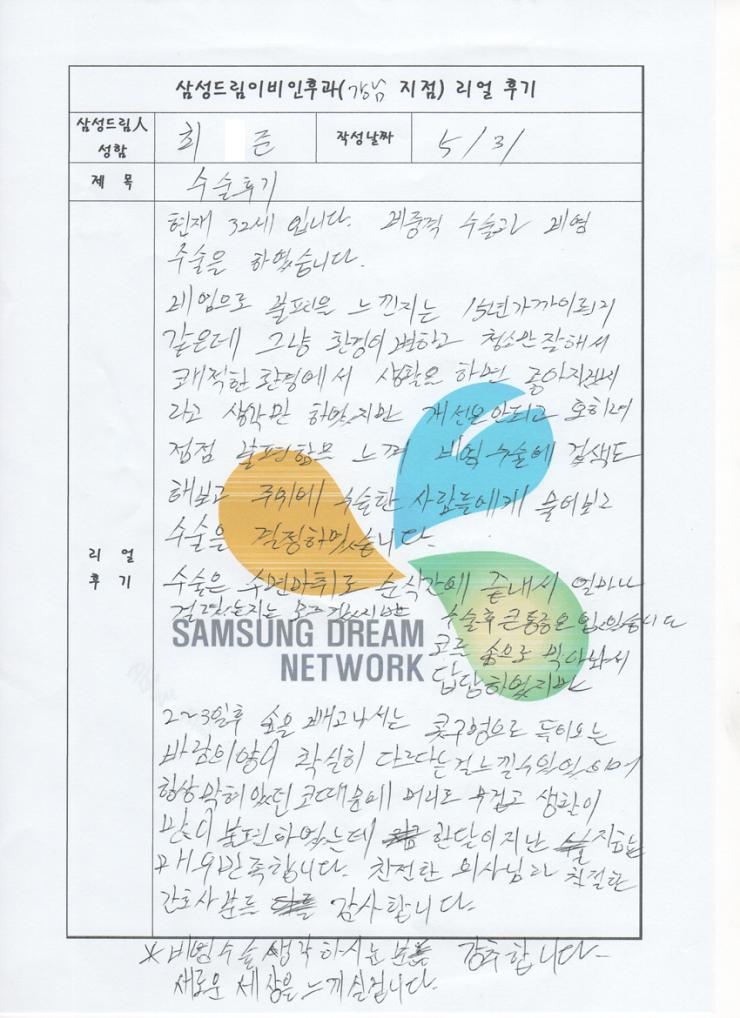 삼성드림이비인후과(강남 지점) 리얼 후기
삼성드림人 성함 최 준 작성날짜 5/31
제 목 수술후기
리 얼 후 기
현재 32세 입니다. 비중격 수술과 비염
수술을 하였습니다.
비염으로 불편을 느낀지는 15년 가까이
같은데 그냥 환경이 변하고 청소만 잘해서
쾌적한 환경에서 생활을 하면 좋아지겠지
라고 생각만 하였지만 개선은 안되고 오히려
점점 불편함을 느껴 비염수술에 검색도
해보고 주위에 수술한 사람들에게 물어보고
수술을 결정하였습니다.
수술은 수면마취로 순식간에 끝내서 얼마나
걸렸는지는 모르겠지만 수술후 큰통증은 없었습니다
SAMSUNG DREAM
NETWORK
코를 솜으로 막아놔서
답답하였지만
2~3일후 솜을 빼고나서는 콧구멍으로 들어오는
바람의양이 확실히 다르다는걸 느낄수있었으며
항상 막혀있던 코때문에 머리도 무겁고 생활이
많이 불편하였는데 한달이지난 지금은
매우만족합니다. 친절한 의사님과 친절한
간호사분들 감사합니다.
※비염수술 생각하시는 분들 강추합니다~
새로운 세상을 느끼실겁니다.